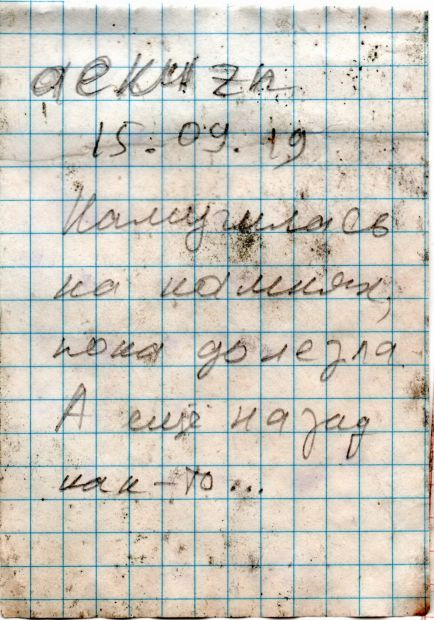 аскизп
15.09.19
Намучилась
на камнях,
пока долезла
А ещё назад
как-то...